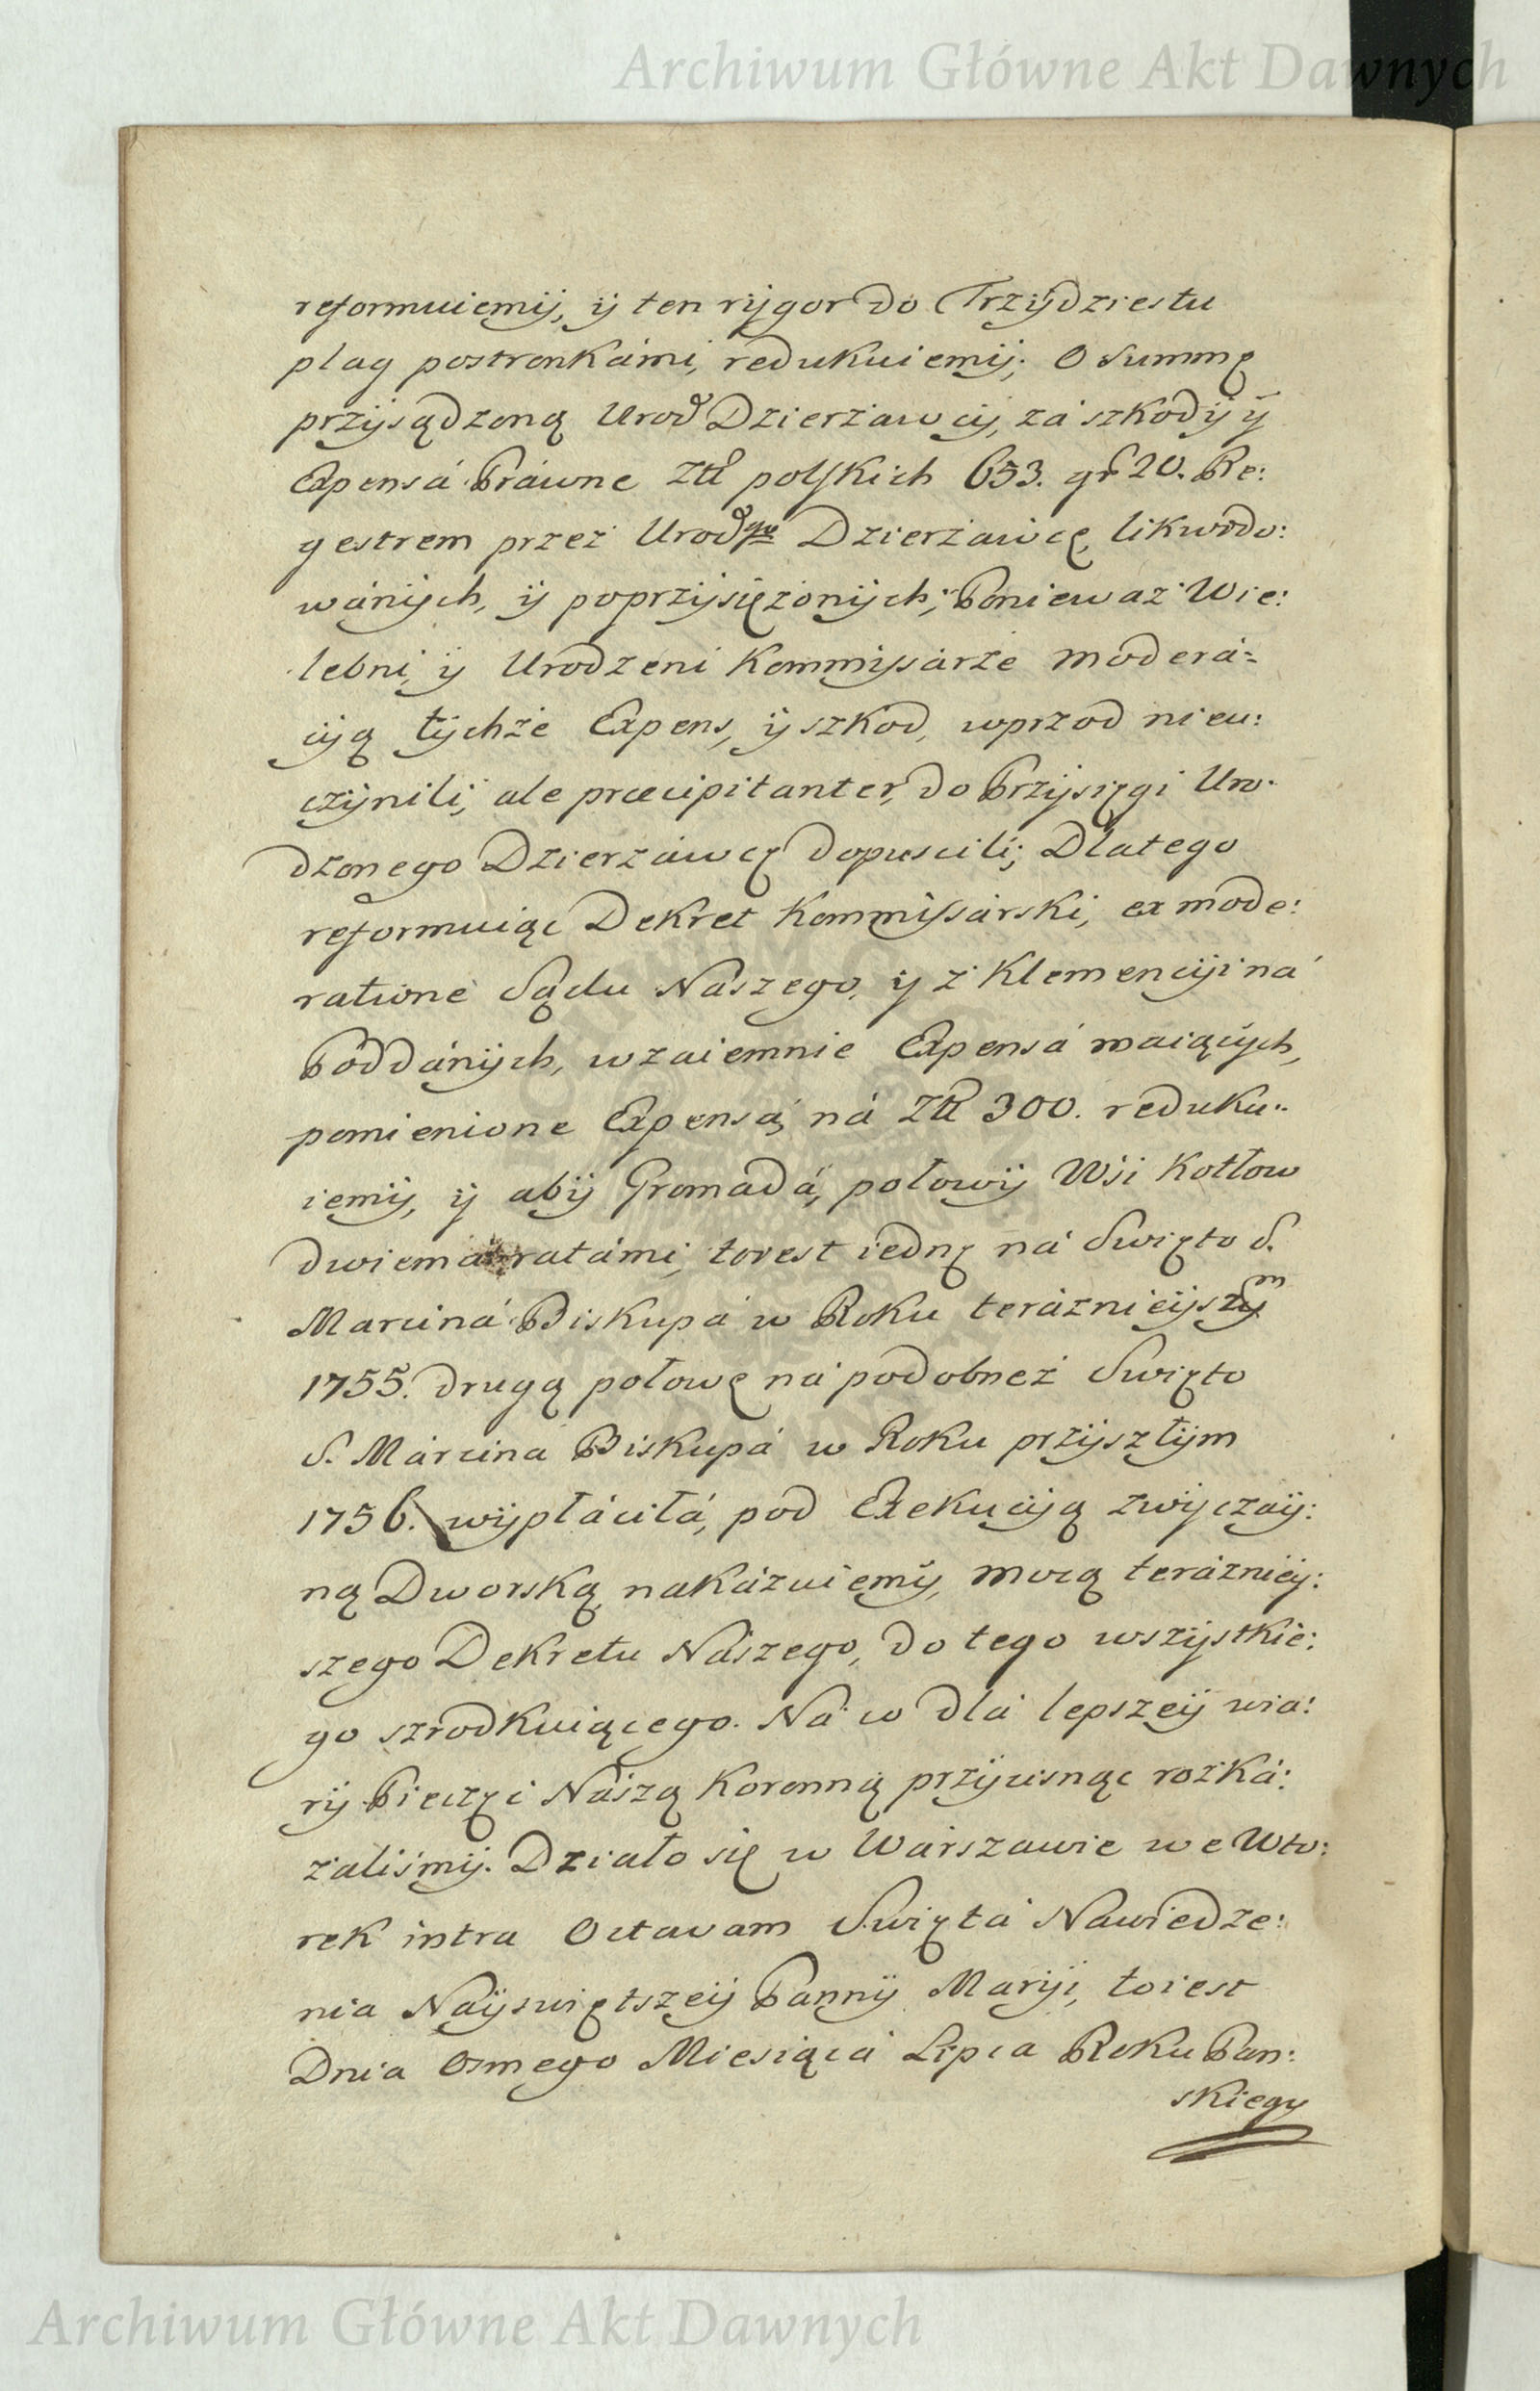 Archiwum Główne Akt Dawnych
reformuiemÿ, ÿ ten rÿgor do Trzÿdziestu
plag postronkámi, redukuiemÿ; O Summę
przÿsądzoną Urod Dzierżawcÿ, zá szkodÿ ÿ
Expensá Práwne Złł polskich 653. gr 20. Re:
gestrem przez Urodgo Dzierżáwcę, likwido:
wánÿch, ÿ poprzÿsiężonÿch; Ponieważ Wie:
lebni, ÿ Urodzeni Kommissárze moderá=
cÿą tÿchże Expens, ÿ szkod, wprzod nieu:
czÿnili, ale præcipitanter, do Przÿsięgi Uro:
dzonego Dzierżáwcę dopuscili; Dlatego
reformuiąc Dekret Kommissárski, ex mode:
ratione Sądu Nászego, ÿ z Klemencÿi ná
Poddánÿch, wzaiemnie Expensá maiącÿch,
pomienione Expensá, ná Złł 300. reduku:
iemÿ, ÿ abÿ Gromadá, połowÿ Wśi Kotłow
dwiema ratámi, toiest iednę ná Swięto S.
Marciná Biskupá w Roku teráznieÿszÿm
1755. drugą połowę ná podobneż Swięto
S. Márcina Biskupá w Roku przÿszłÿm
1756. wÿpłáciłá, pod Exekucÿą zwÿczaÿ:
ną Dworską nakázuiemÿ, mocą teráznieÿ:
szego Dekretu Nászego, do tego wszÿstkie:
go szrodkuiącego. Ná co dlá lepszeÿ wia:
rÿ Pieczęć Nászą Koronną przÿcisnąc rozká:
zaliśmÿ. Działo się w Wárszawie we Wto:
rek intra Octavam Swiętá Nawiedze:
nia Naÿswiętszeÿ Pannÿ Marÿi, toiest
Dnia Osmego Miesiącá Lipca Roku Pan:
skiego
Archiwum Główne Akt Dawnych